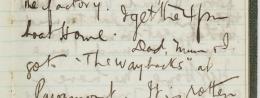 the factory. I get the 4 pm
boat home. Dad, Mum & I
got "The Waybacks" at
Paramount. It is rotten